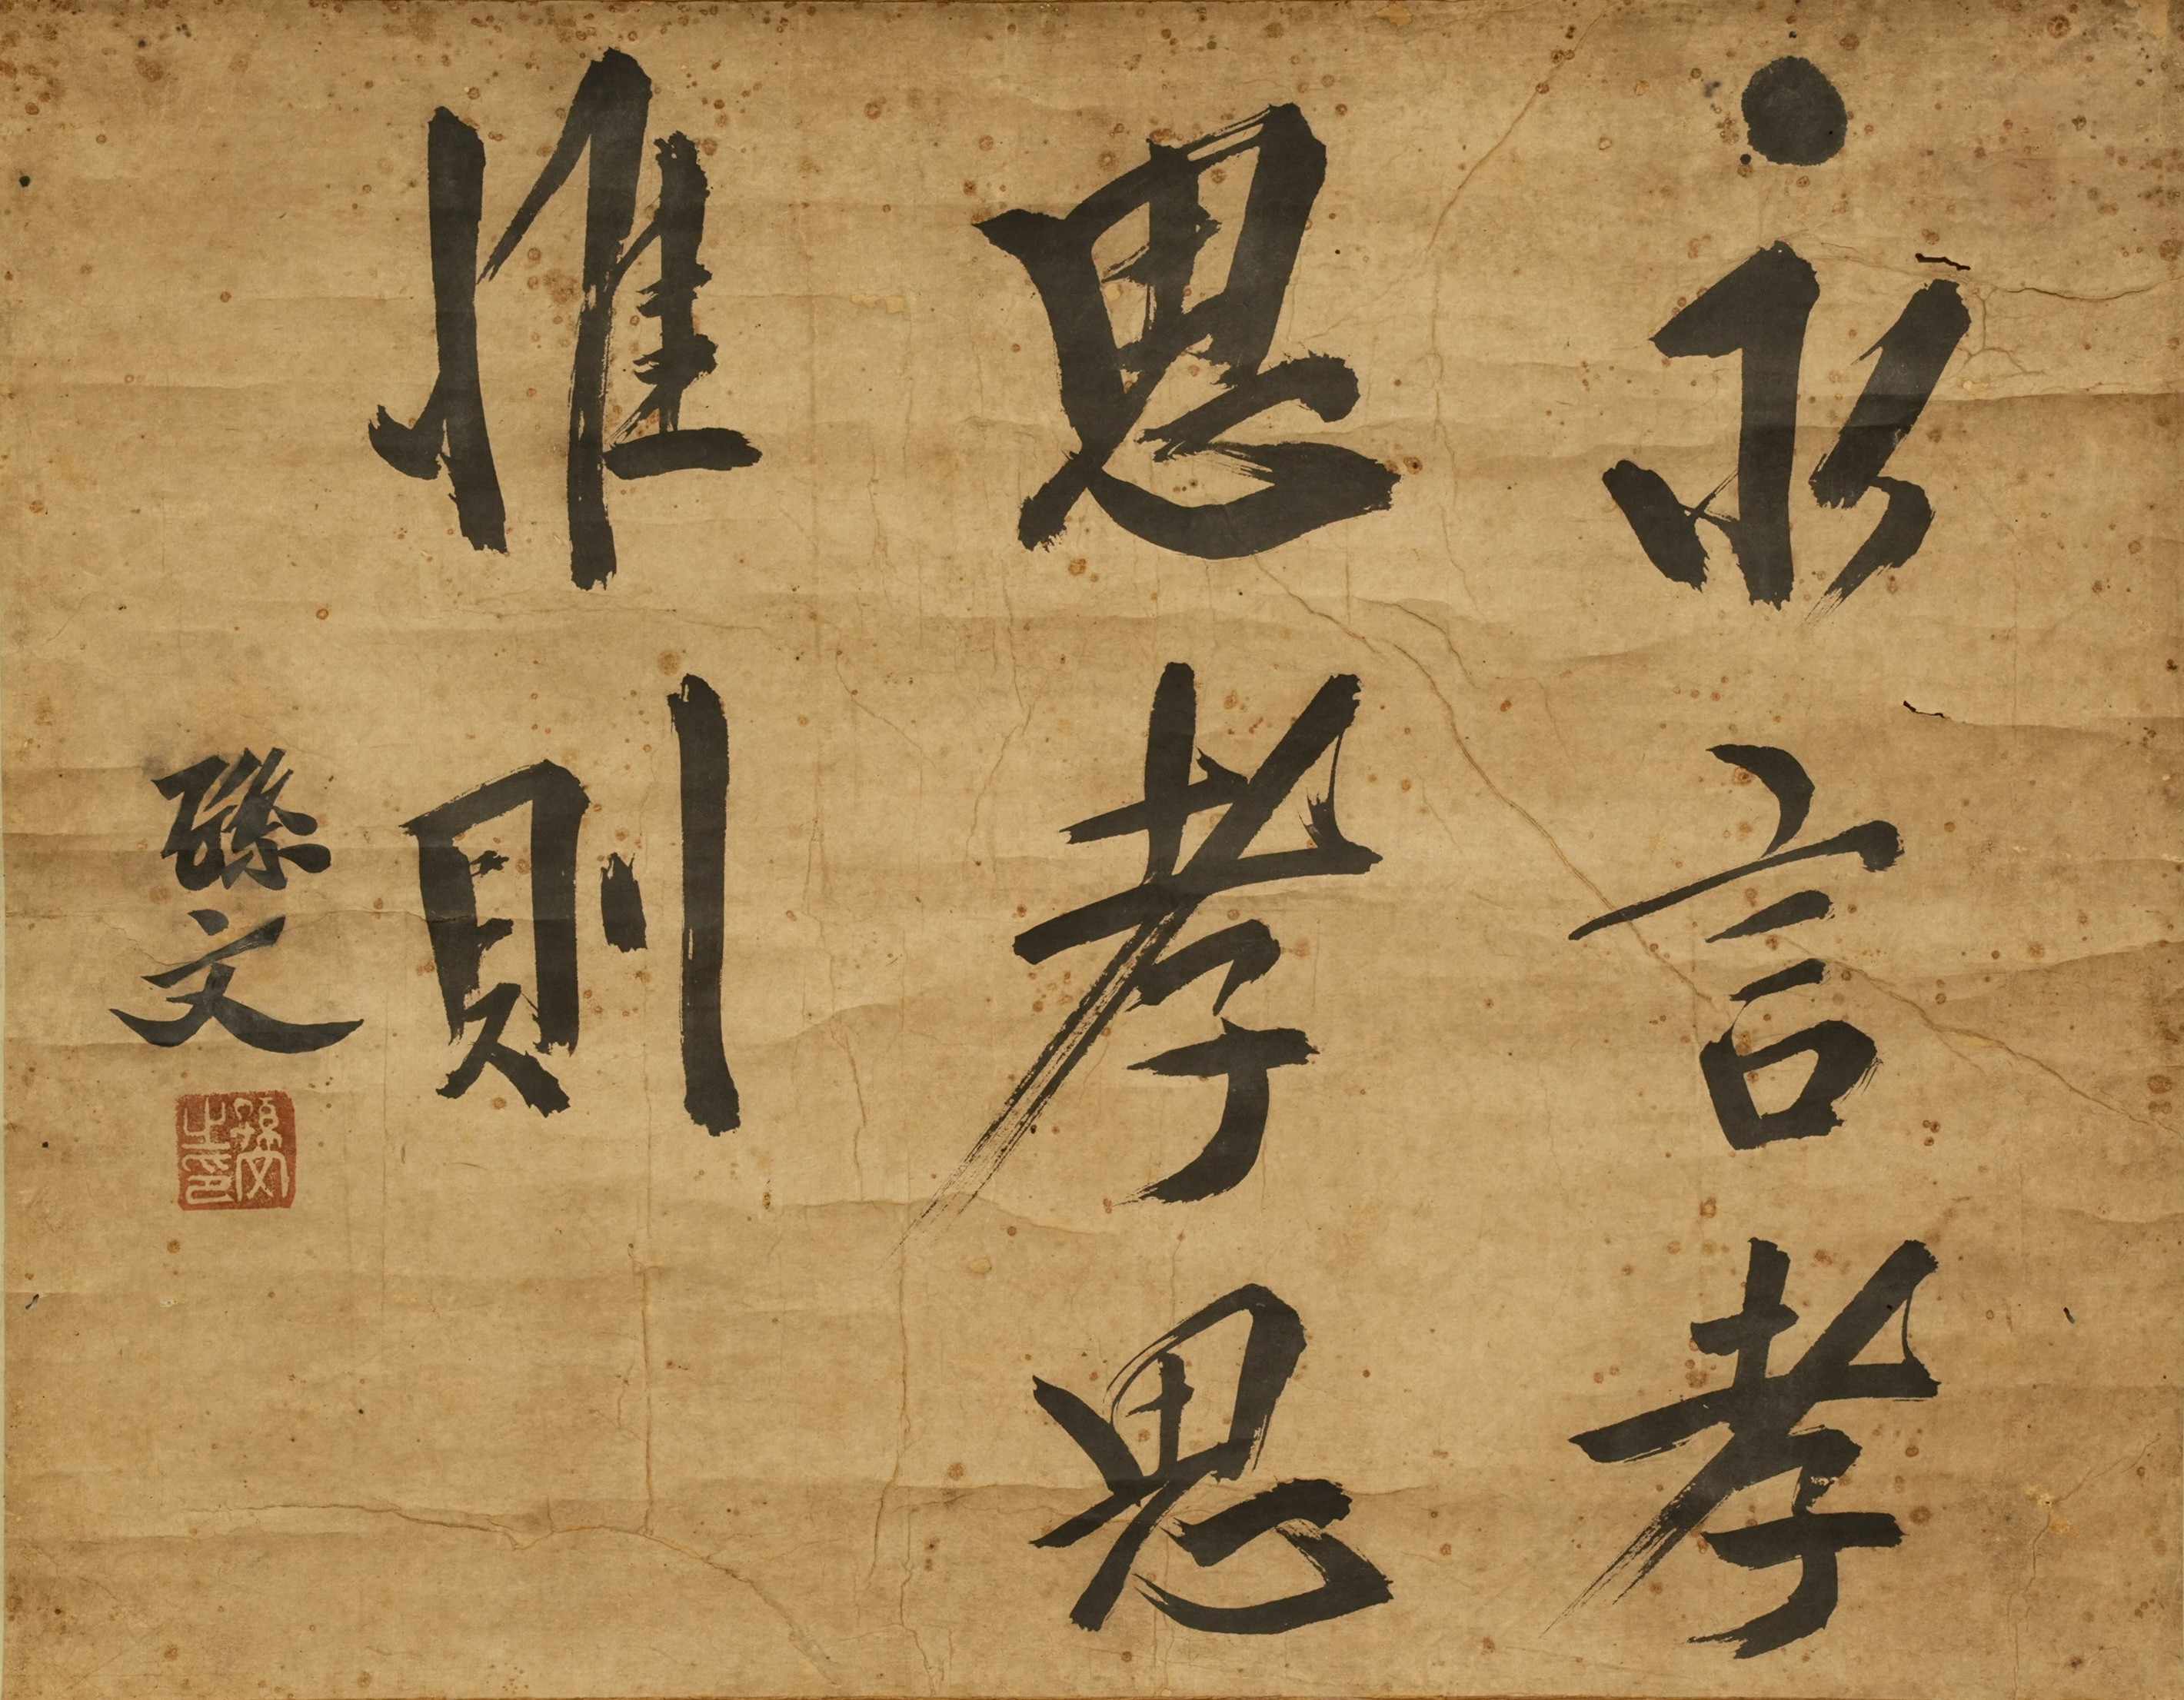 永言孝
思孝思
惟則
孫文
孫文之印